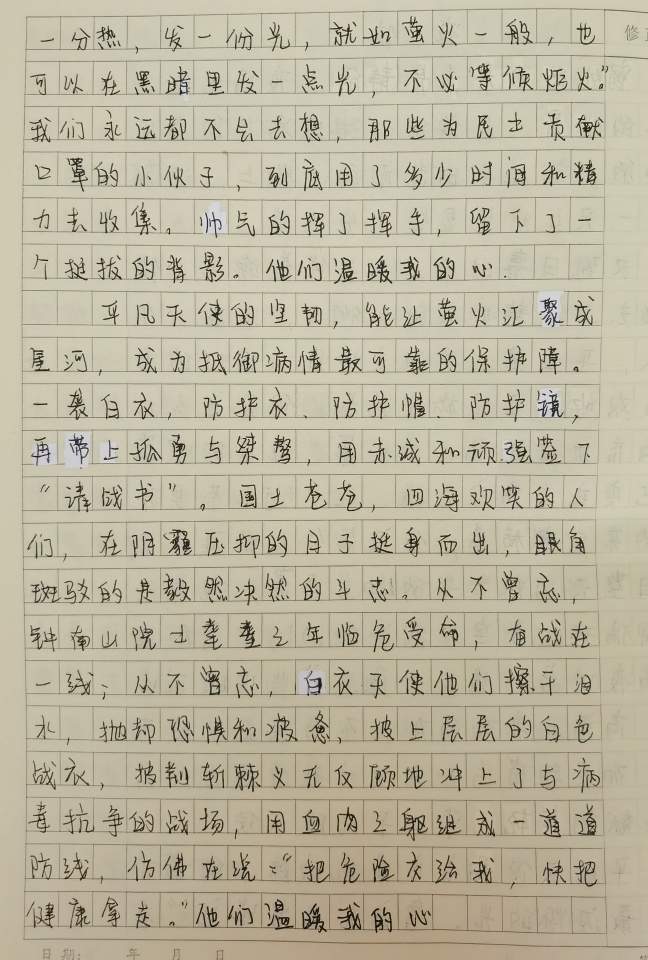 一分热，发一份光，就如萤火一般，也
可以在黑暗里发一点光，不必等候炬火。"
我们永远都不会去想，那些为民士贡献
口罩的小伙子，到底用了多少时间和精
力去收集。帅气的挥了挥手，留下了一
个挺拔的背影。他们温暖我的心.
平凡天使的坚韧，能让萤火汇聚成
星河，成为抵御病情最可靠的保护障。
一袭白衣，防护衣、防护帽、防护镜，
再带上孤勇与桀骜，用赤诚和顽强签下
"请战书"。国土苍苍，四海欢笑的人
们，在阴霾压抑的日子挺身而出，眼角
斑驳的是毅然决然的斗志。从不曾忘，
钟南山院士耄耋之年临危受命，奋战在
一线；从不曾忘，白衣天使他们擦干泪
水，抛却恐惧和疲惫，披上层层的白色
战衣，披荆斩棘义无反顾地冲上了与病
毒抗争的战场，用血肉之躯组成一道道
防线，仿佛在说："把危险交给我，快把
健康拿走。"他们温暖我的心
日期: 年 月 日